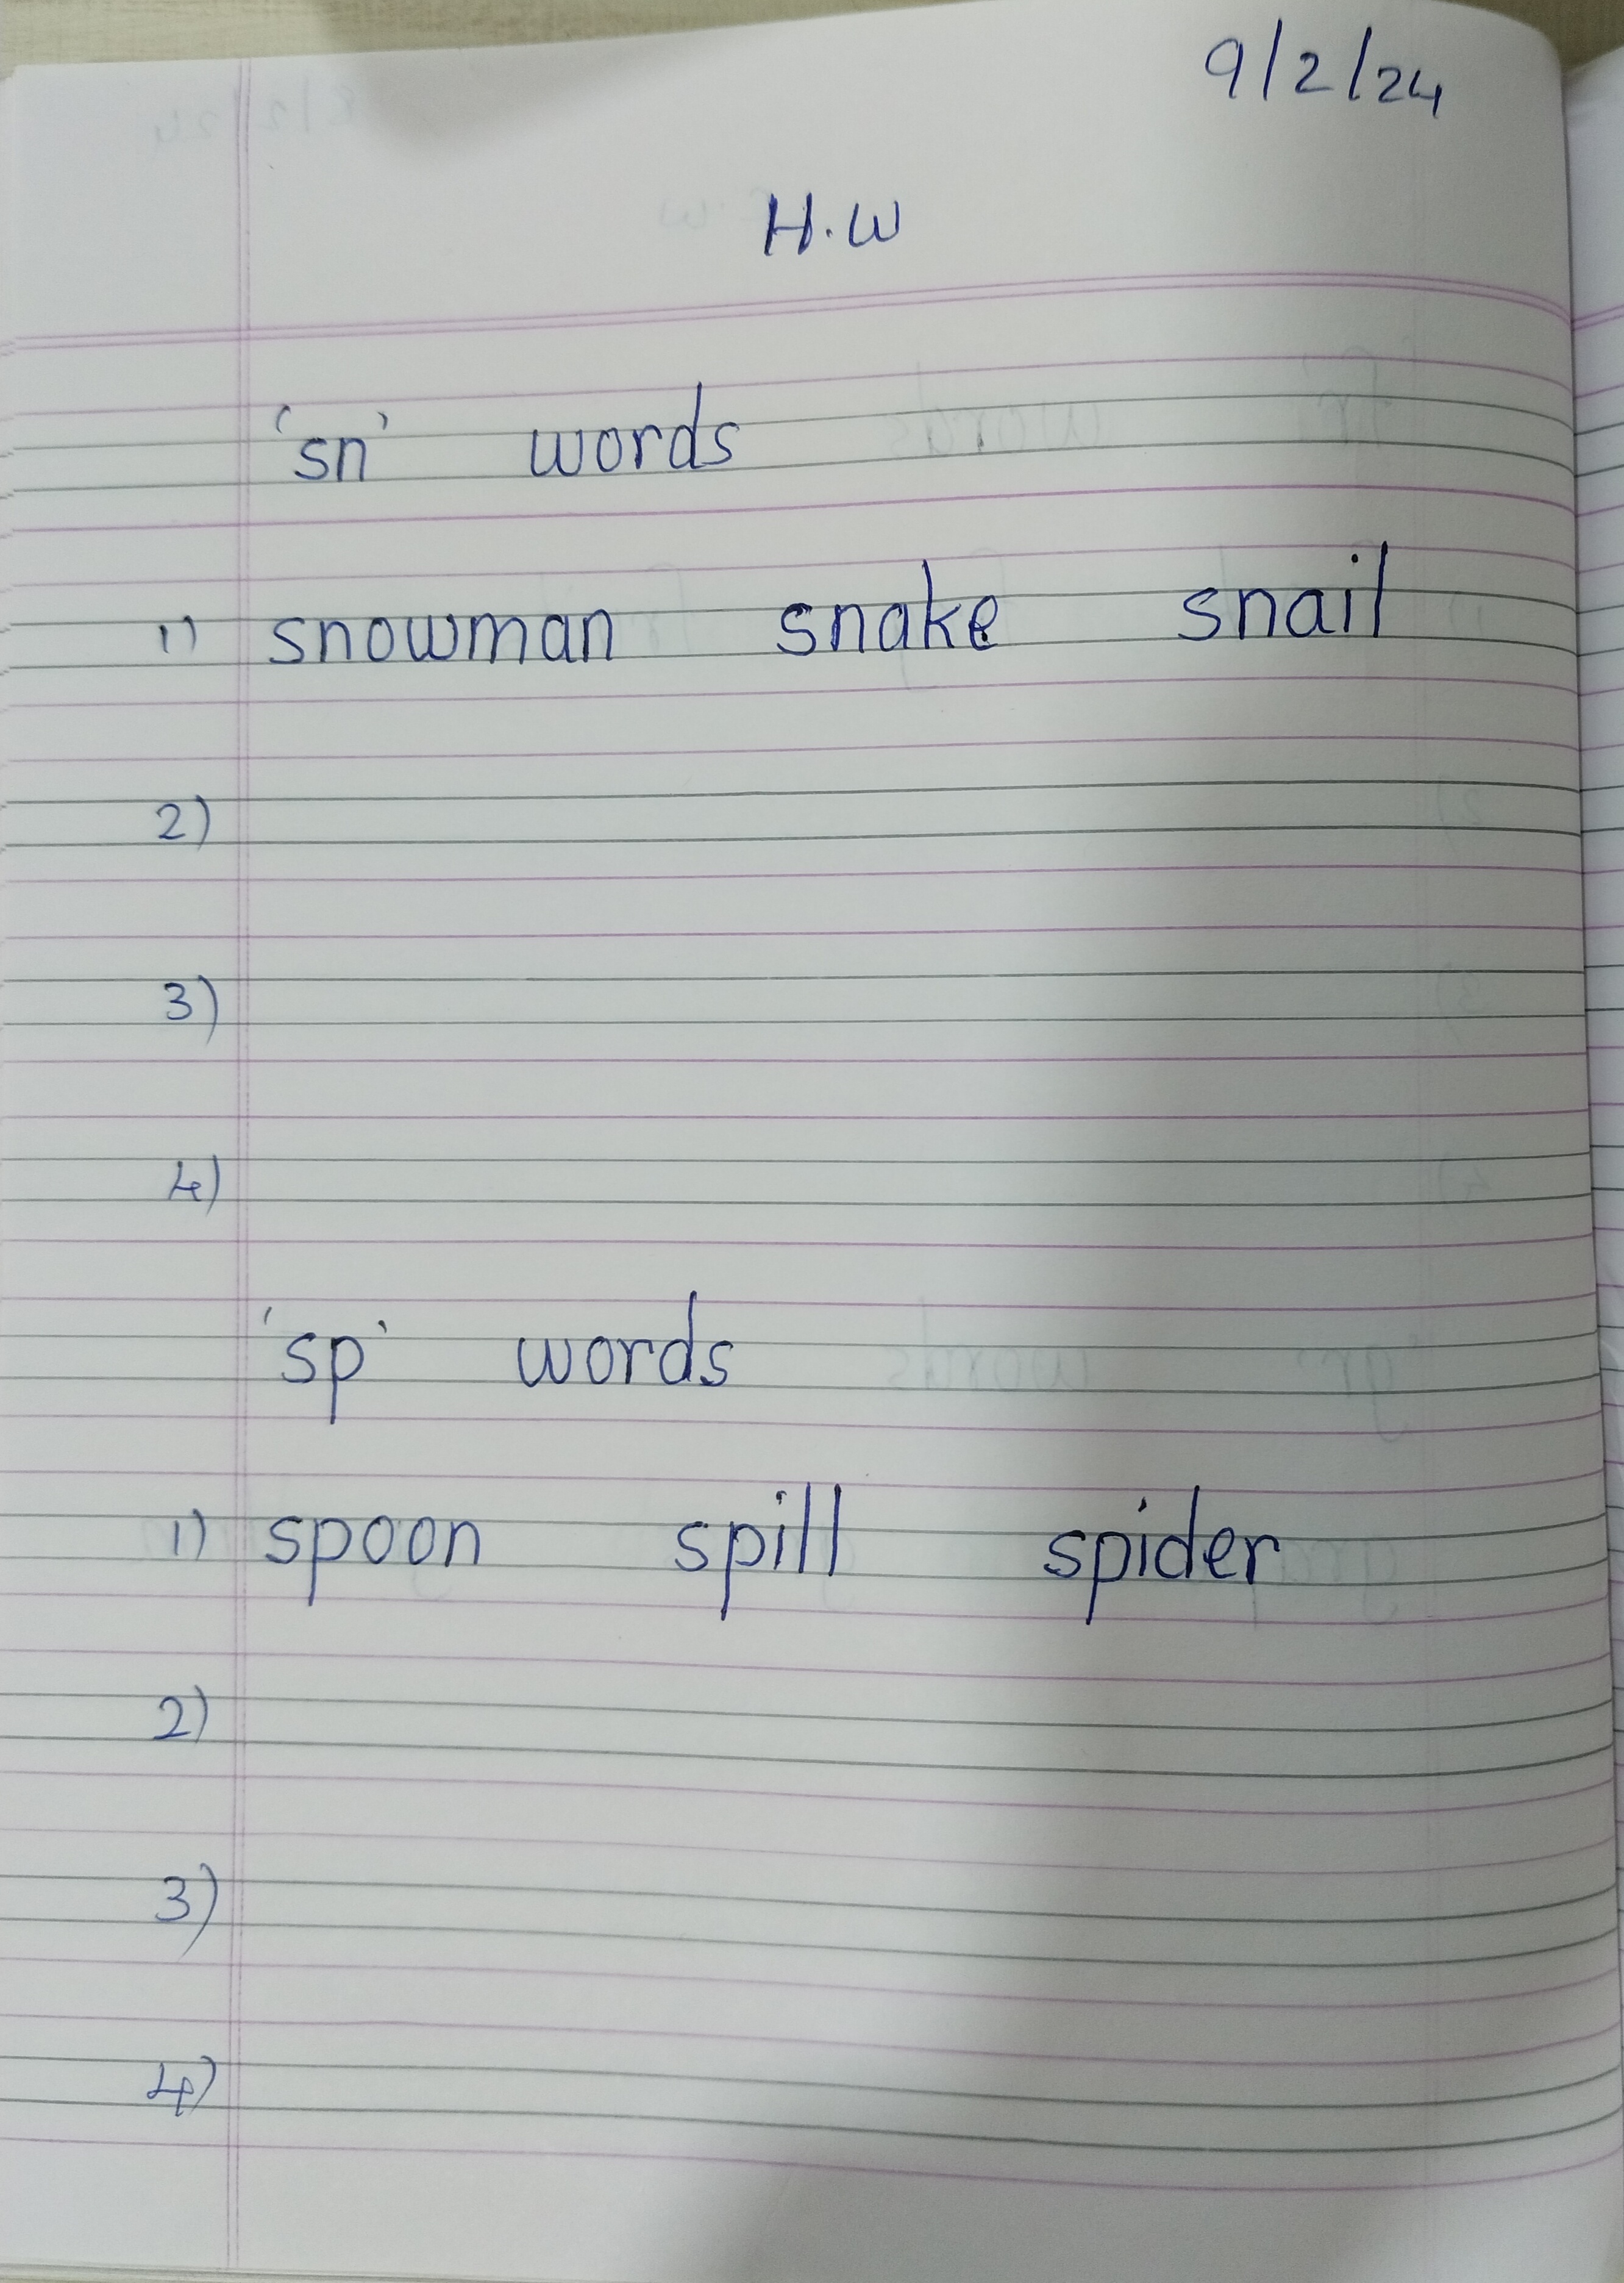 9/2/24
H.W
'sn' words
1) snowman snake snail
2)
3)
4)
'sp' words
1) spoon spill spider
2)
3)
4)